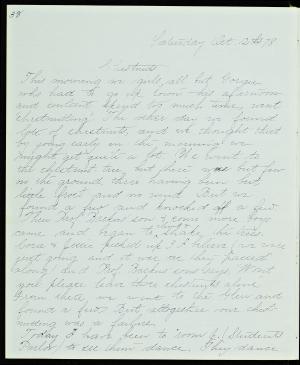 38
Saturday Oct. 12th 78
Chestnuts
This morning we girls, all but Georgie
who had to go up town this afternoon
and couldn't spend so much time, went
chestnutting. The other day we found
lots of chestnuts, and we thought that
by going early in the morning we
might get quite a lot. We went to
the chestnut tree, but there were but few
on the ground, there having been but
little frost and no wind. But we
found a few and knocked off a few.
Then Prof. son & some more boys
came and began to shake the trees.
& picked up 3 I believe, we were
just going and it was as they passed
along did Prof. son says, Won't
you please leave those chestnuts alone
From there we went to the Glen and
found a few. But, altogether our chest-
nutting was a failure.
Today I have been to room (Students
Parlor) to see them dance. They dance